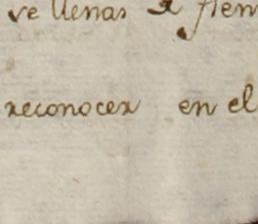 ve llenas
reconocer en el